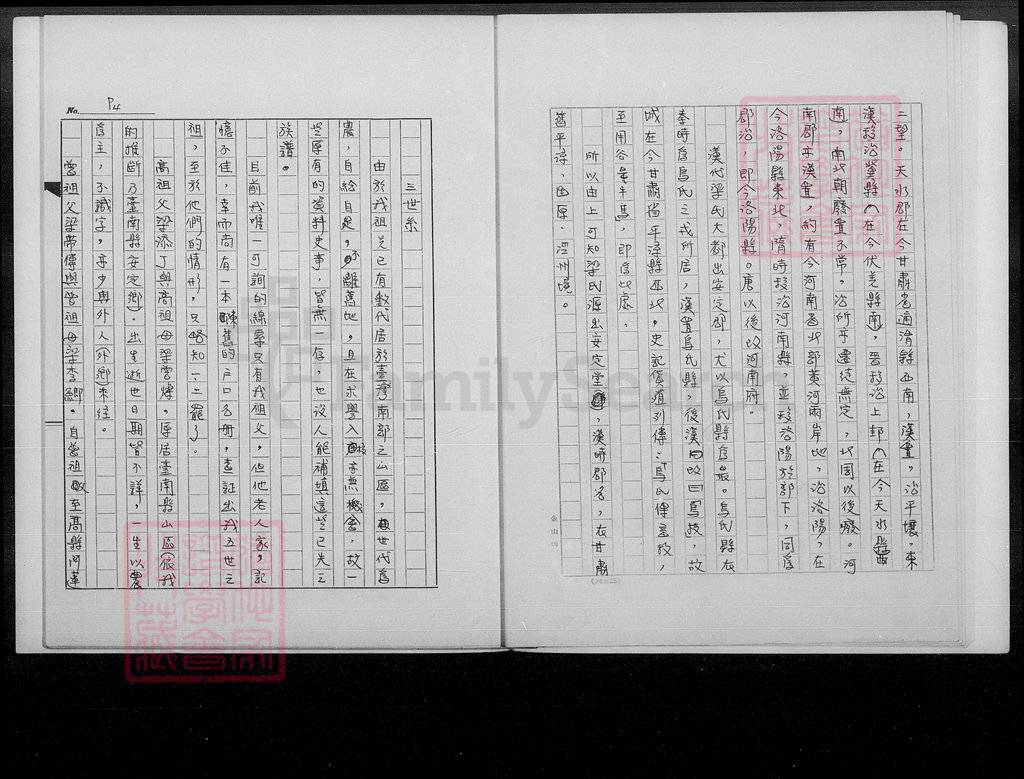 二望。天水郡在今甘肅省通渭縣西南，漢置，治平壤。東
漢移治冀縣，(在今伏羌縣南)，晉移治上邽，(在今天水縣西
南，南北朝廢置不常，治所亦遷徙無定，北周以後廢。河
南郡亦漢置，約有今河南省北部黃河兩岸地，治洛陽，在
今洛陽縣東北，隋時移治河南縣，並移洛陽於郭下，同為
郡治，即今洛陽縣。唐以後改河南府。
漢代梁氏大都出安定郡，尤以烏氏縣為最。烏氏縣在
秦時為烏氏之戎所居，漢置烏氏縣，後漢改曰烏枝，故
城在今甘肅省平涼縣西北，史記貨殖列傳：烏氏倮畜牧，
至用谷量牛馬，即為此處。
所以由上可知梁氏源出安定堂，漢時郡名，在甘肅
舊平涼、固原、涇州境。
No. P4
三世系
由於我祖先已有數代居於臺灣南部之山區，世代為
農，自給自足，不離舊地，且在求學入校亦無機會，故一
些原有的資料史事，皆無一存，也沒人能補填這些已失之
族譜。
目前我唯一可詢的線索只有我祖父，但他老人家，記
憶不佳，幸而尚有一本陳舊的戶口名冊，查証出我五世之
祖，至於他們的情形，只略知一二罷了。
高祖父梁添丁與高祖母梁雲煒。原居臺南縣山區(依我
的推斷乃臺南縣安定鄉)．出生逝世日期皆不詳，一生以農
為主，不識字，亦少與外人(外鄉)來往。
曾祖父梁常傳與曾祖母梁李鄉。自曾祖至高縣阿蓮
金山
(24×25)
FamilySearch